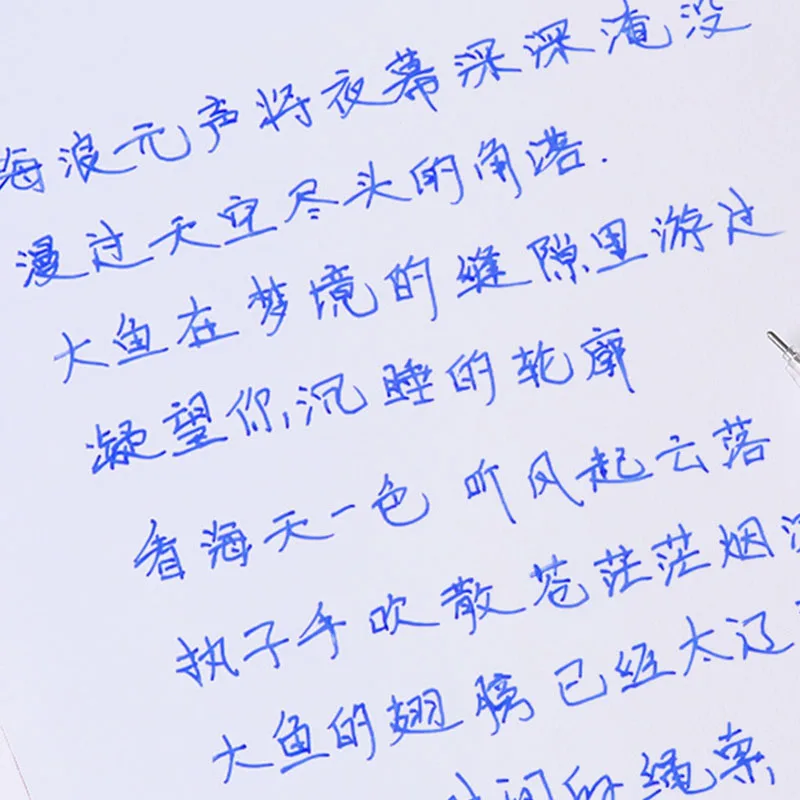 海浪无声将夜幕深深淹没
漫过天空尽头的角落.
大鱼在梦境的缝隙里游过
凝望你沉睡的轮廓
看海天一色 听风起云落
执子手吹散苍茫茫烟
大鱼的翅膀已经太辽
间的绳索